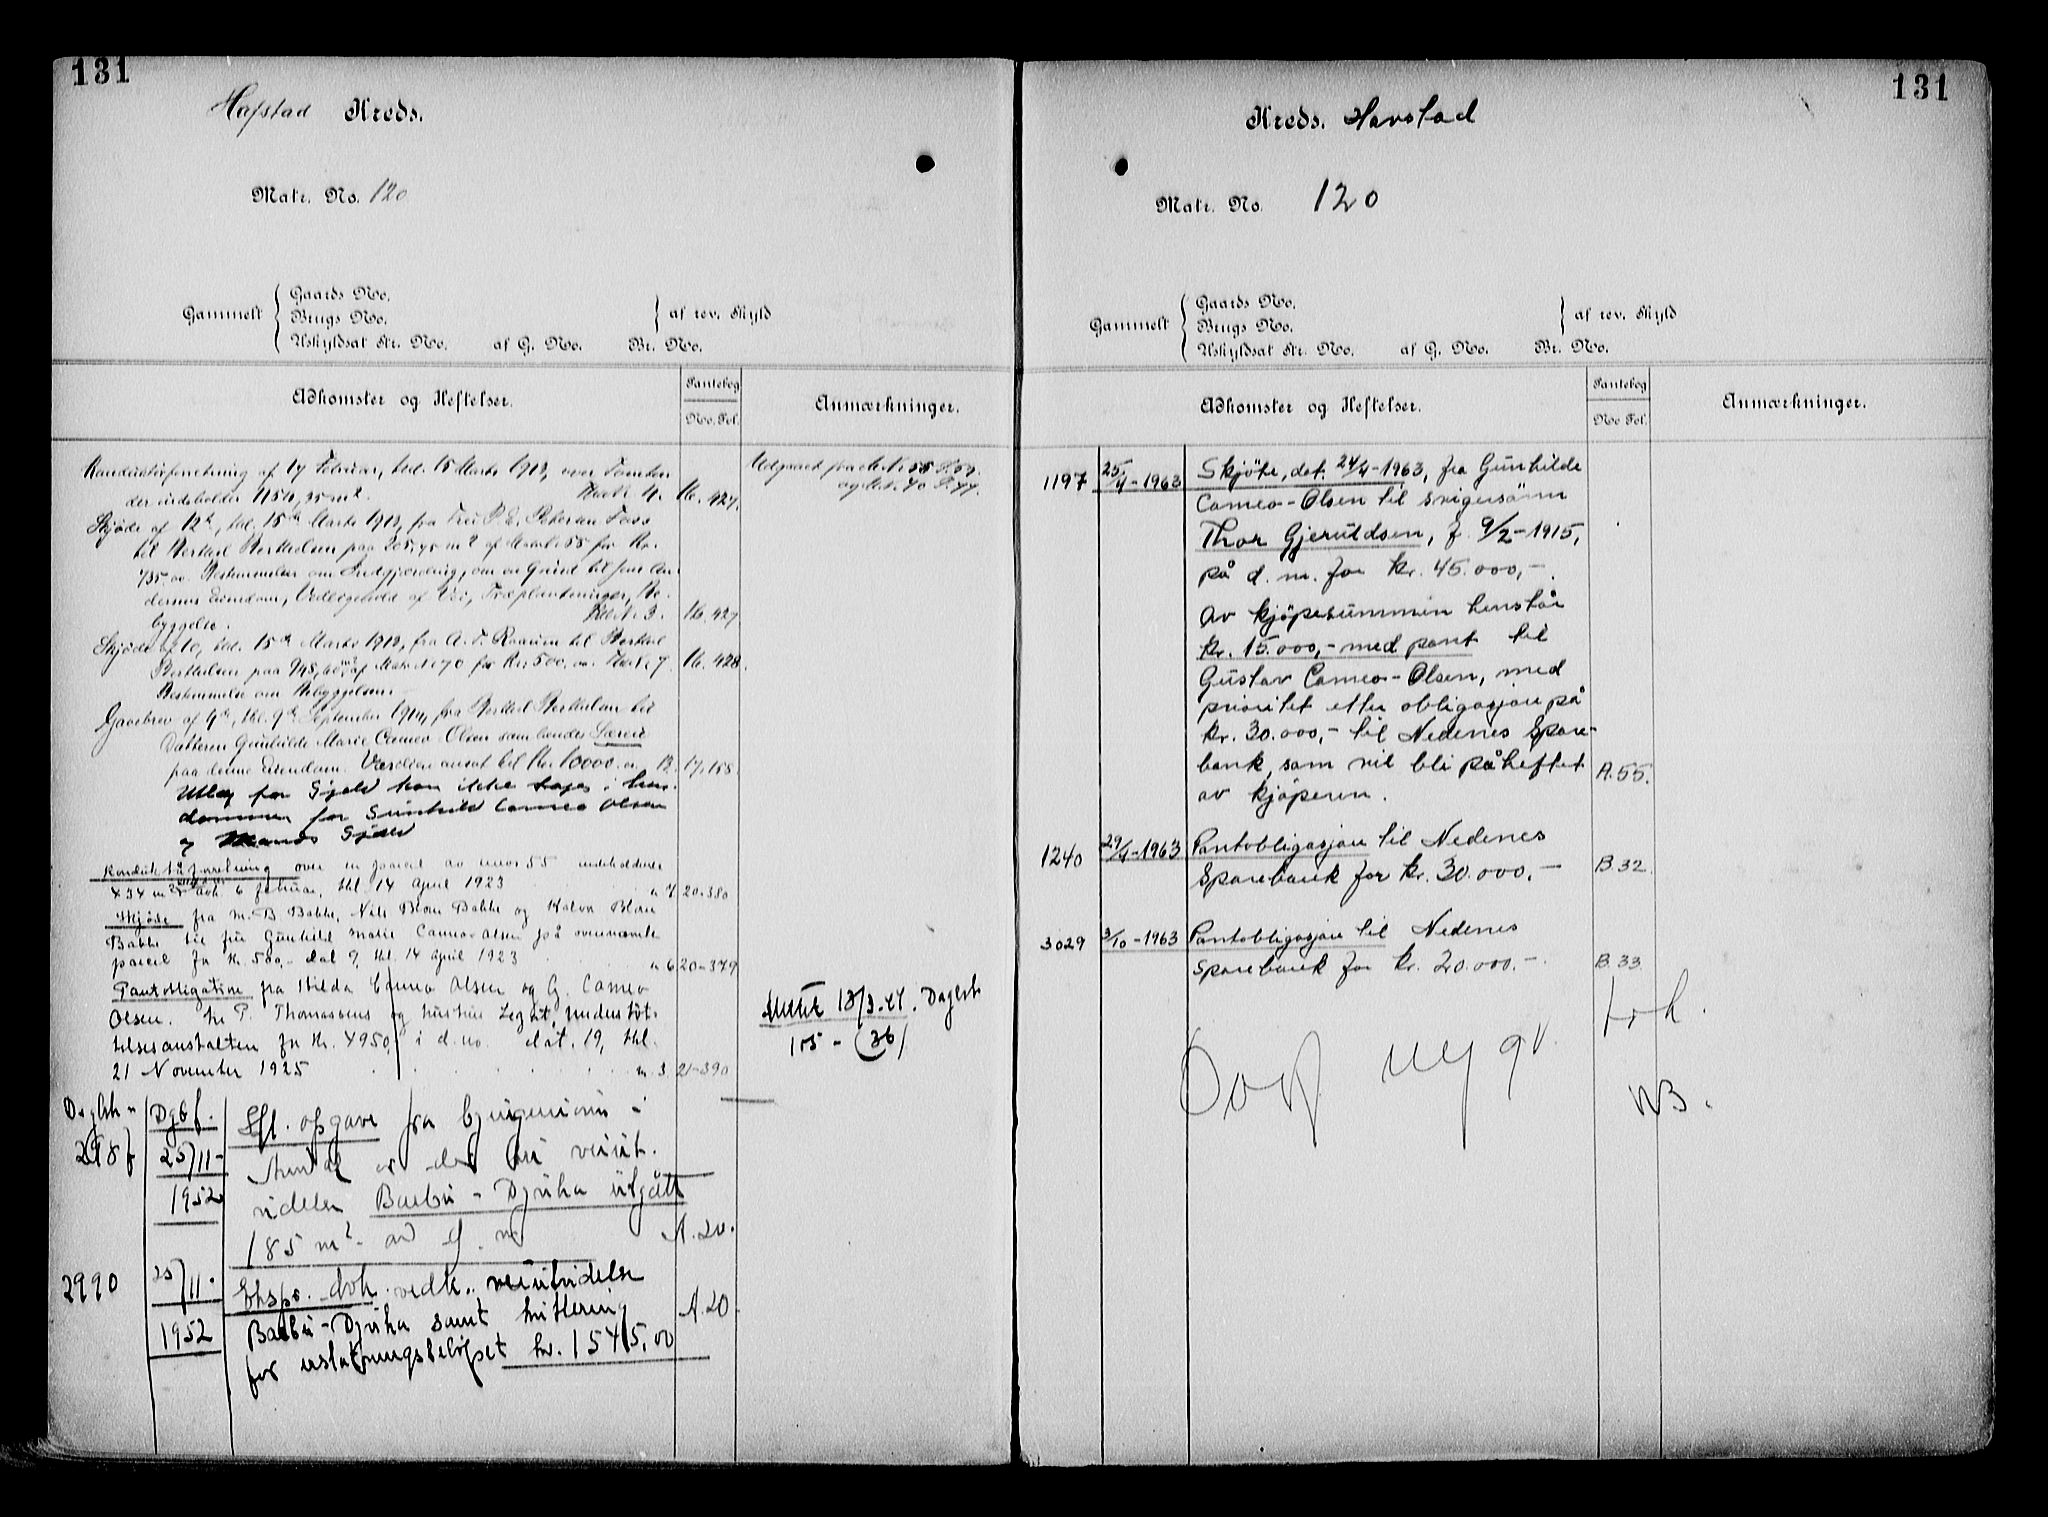 131
Hafstad Kreds.
Matr. No. 120
Gammelt
Gaards No.
Brugs No.
Uskyldsat Str. No. af G. No. Br. No.
af rev. Skyld
Adkomster og Heftelser.
Pantebog
No. Fol.
Anmærkninger.
Konduktørforretning af 17 Februar, tnl. 15 Marts 1912, over Tomten
der indeholder 1154,35 m². 16. 427.
Udgaaet fra Matr. N. 55 F. 59.
og Matr. N. 70 F. 77.
Skjøde af 12te, tnl. 15de Marts 1912, fra Fru P. E. Petersen Foss
til Berthel Berthelsen paa 205,75 m² af Matr. 55 for Kr.
735.00. Bestemmelser om Indgjærding, om en Grind til
dennes Eiendom, Vedligehold af Vei, Træplantninger, Be-
byggelse. N. 3. 16. 427.
Skjøde af 10, tnl. 15de Marts 1912, fra A. F. Raanum til Berthel
Berthelsen paa 948,60 m² af Matr. N. 70 for Kr. 500,00. N. 7. 16. 428.
Bestemmelse om Bebyggelsen
Gavebrev af 4de, tnl. 9de September 1914, fra Berthel Berthelsen til
Datteren Gunhilde Marie Cameo-Olsen som hendes Særeie
paa denne Eiendom. Værdien ansat til Kr. 10000.00 12. 17. 158.
Utlæg for Gjæld kan ikke tages i Eien-
dommen for Gunhild Cameo Olsen
og Mands Gjæld
Konduktørforretning over en parcel av mnr 55 indeholdende
434 m² dat. 6 februar, tnl. 14 april 1923 n. 7. 20-380
Skjøde fra M. B. Bakke, Nils Blom Bakke og Halvor Blom
Bakke til fru Gunhild Marie Cameo-Olsen på ovennævnte
parcel for kr. 500,- dat 9, tnl. 14 april 1923 n. 6 20-379
Pantobligation fra Hilda Cameo Olsen og G. Cameo
Olsen til P. Thomassens og hustrus Legat, understøt-
telsesanstalten for Kr. 4950,- i d. no. dat. 19, tnl.
21 November 1925 n. 3. 21-390
13/3.44. Dagbok
105 - (36)
Dagbok n
Dgbf.
298
25/11-
1952
Efl. opgave fra
er det
videlse Barbu - Dyvika utgått
185 m² av d. m A. 20.
2990
25/11.
1952
Ekspr. dok. vedk. veiutvidelse
Barbu-Dyvika samt kvittering A. 20
for erstatningsbeløpet kr. 15415,00
131
Kreds. Havstad
Matr. No. 120
Gammelt
Gaards No.
Brugs No.
Uskyldsat Str. No. af G. No. Br. No.
af rev. Skyld
Adkomster og Heftelser.
Pantebog
No Fol.
Anmærkninger.
1197 25/4-1963 Skjöte, dat. 24/4-1963, fra Gunhilde
Cameo-Olsen til svigersönn
Thor Gjeruldsen, f. 9/2-1915,
på d. m. for kr. 45.000,-.
Av kjöpesummen henstår
kr. 15.000,- med pant til
Gustav Cameo-Olsen, med
prioritet etter obligasjon på
kr. 30.000,- til Nedenes Spare-
bank, som vil bli påheftet A. 55.
av kjöperen.
1240 29/4-1963 Pantobligasjon til Nedenes
Sparebank for kr. 30.000,- B. 32.
3029 3/10-1963 Pantobligasjon til Nedenes
Sparebank for kr. 20.000.- B. 33.